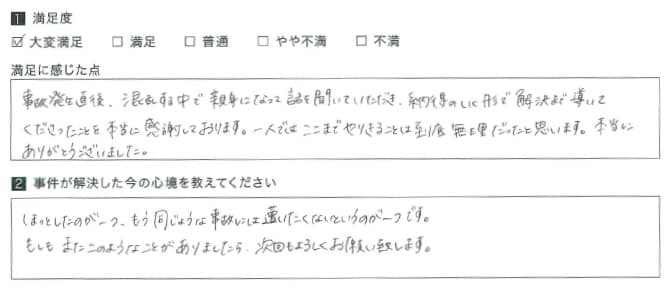 1 満足度
☑ 大変満足 □ 満足 □ 普通 □ やや不満 □ 不満
満足に感じた点
事故発生直後、混乱する中で親身になって話を聞いていただき、納得のいく形で解決まで導いて
くださったことを本当に感謝しております。一人ではここまでやりきることは到底無理だったと思います。本当に
ありがとうございました。
2 事件が解決した今の心境を教えてください
ほっとしたのが一つ、もう同じような事故には遭いたくないというのが一つです。
もしもまたこのようなことがありましたら、次回もよろしくお願い致します。